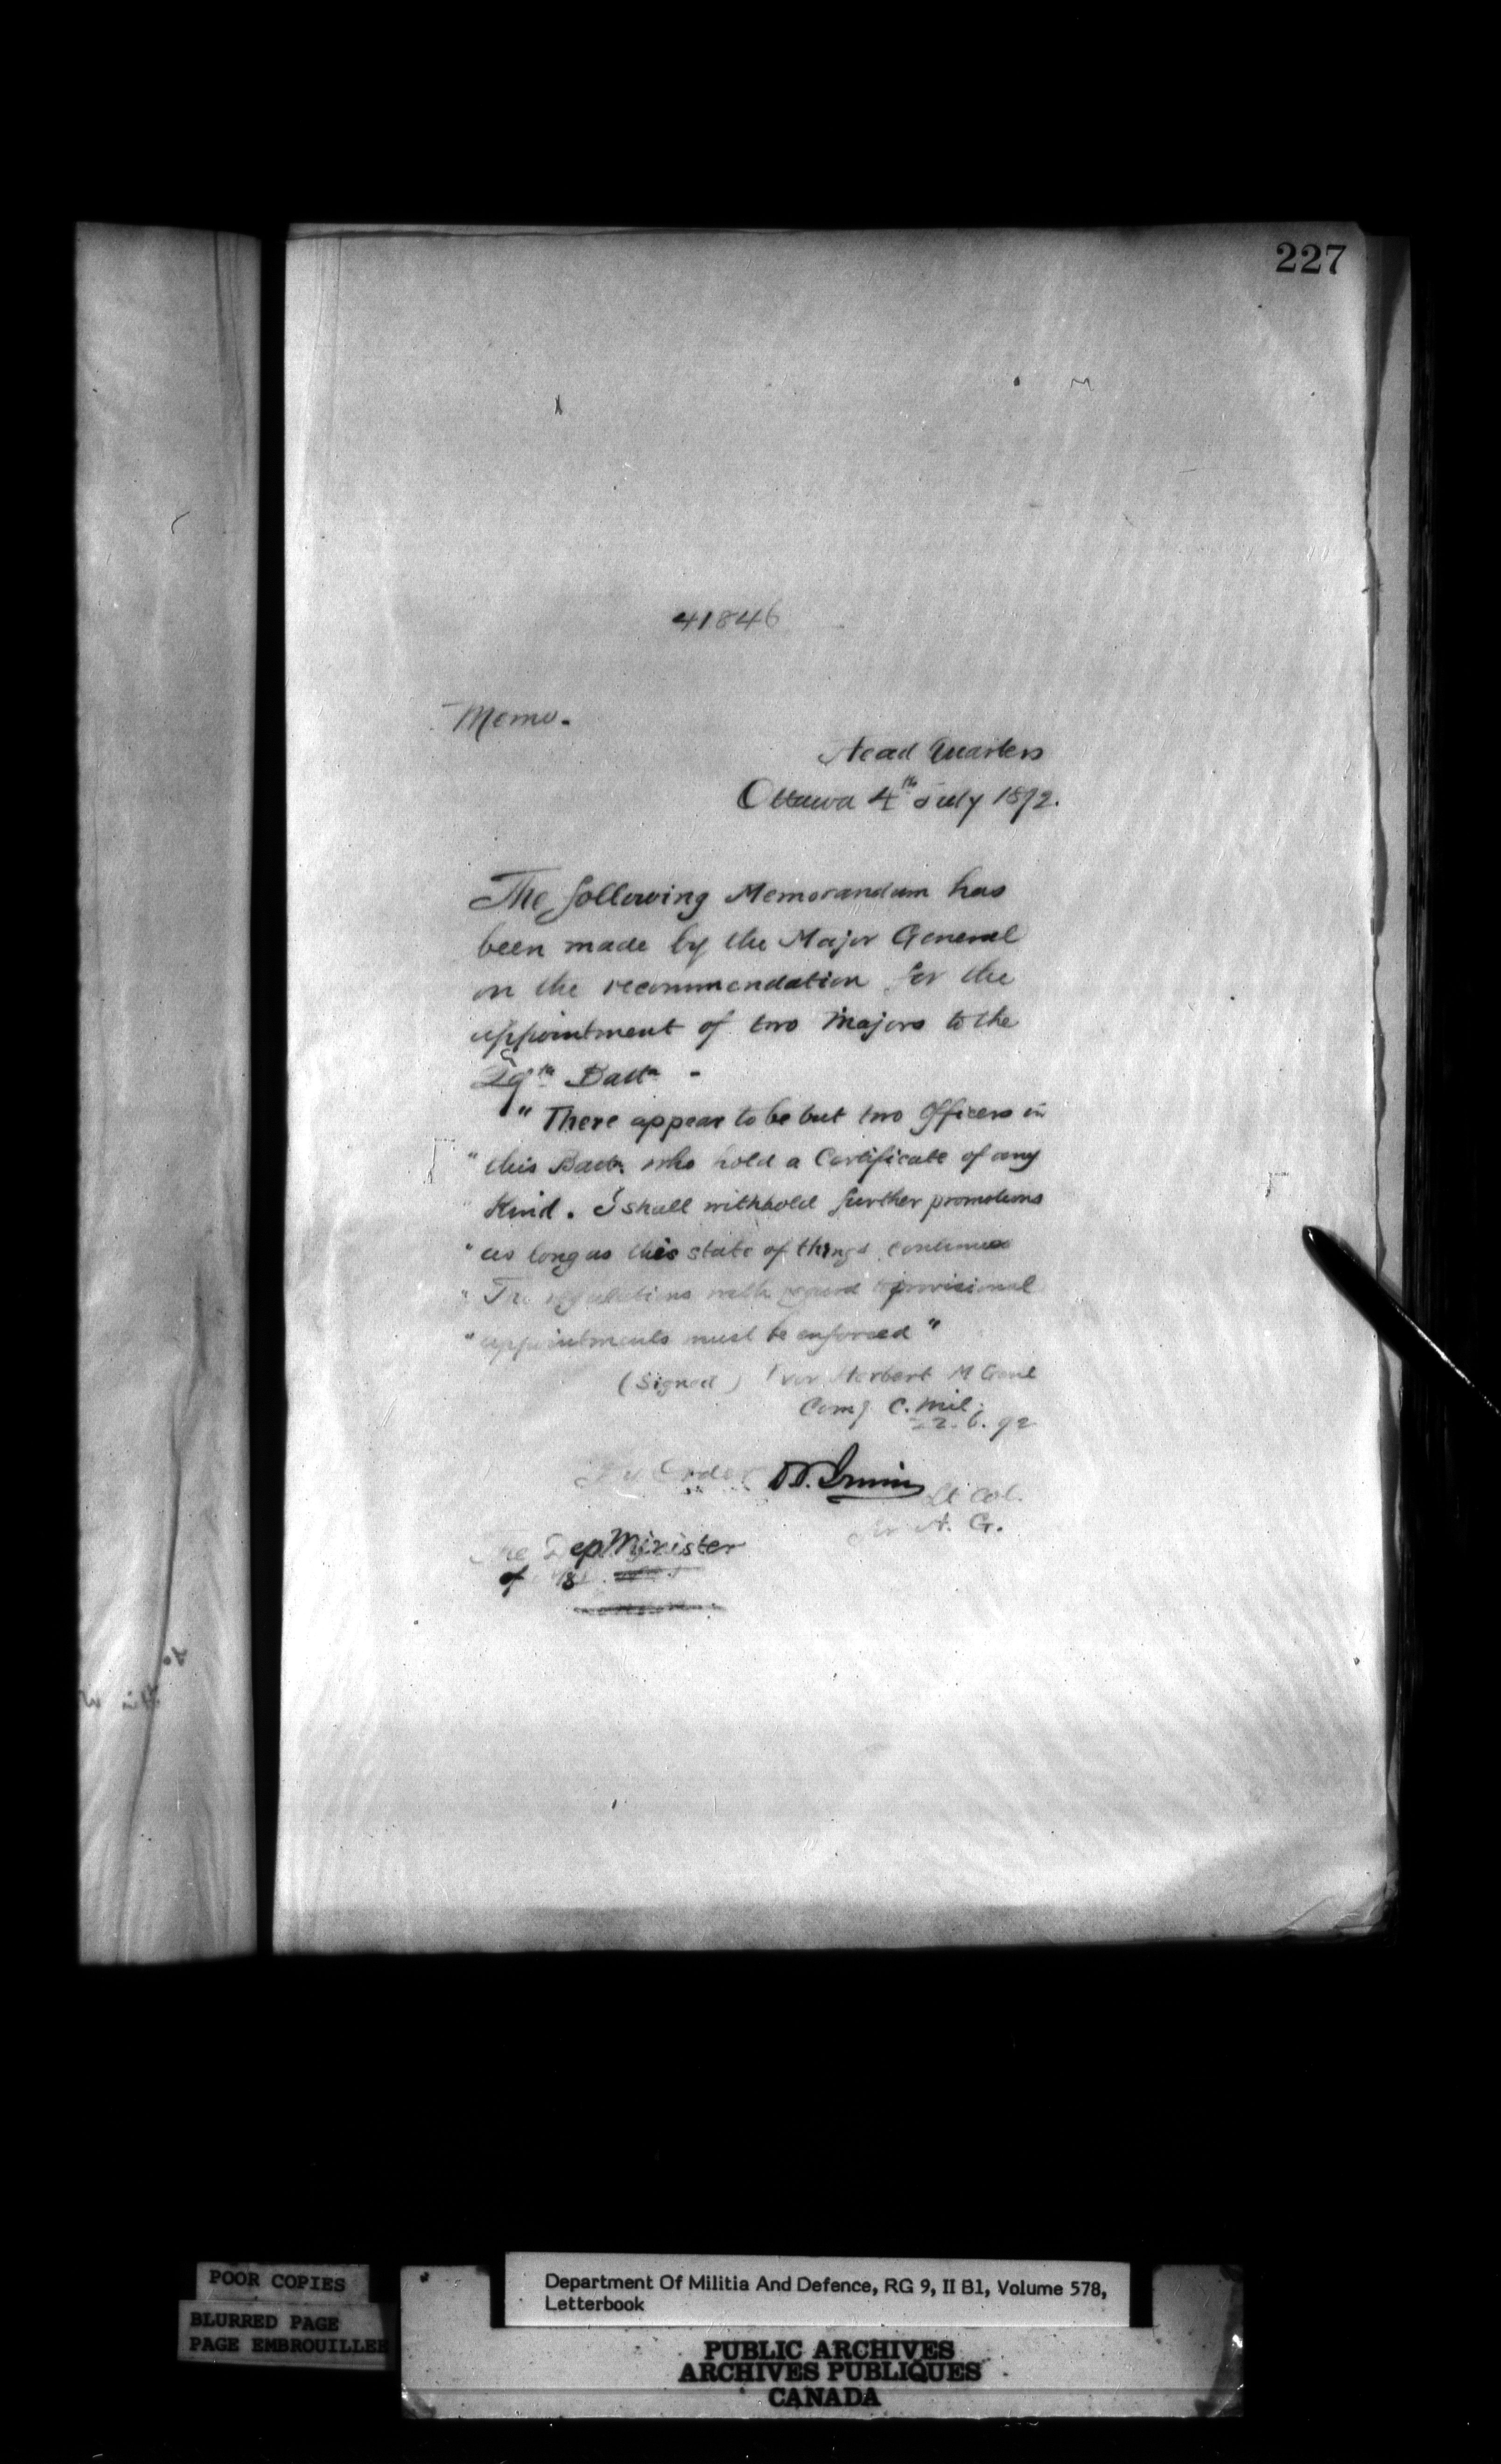 227
41846
Memo.
Head Quarters
Ottawa 4th July 1892.
The following Memorandum has
been made by the Major General
on the recommendation for the
appointment of two Majors to the
29th Battn -
" There appear to be but two Officers in
" this Battn. who hold a Certificate of any
" Kind. I shall withhold further promotions
" as long as this state of things continues
" The regulations with regard to provisional
" appointments must be enforced "
(Signed) Ivor Herbert M Genl
Comg C. Mil:
22.6.92
By Order D.T. Irwin Lt Col.
for A. G.
The Dep Minister
of
POOR COPIES
BLURRED PAGE
PAGE EMBROUILLEE
Department Of Militia And Defence, RG 9, II B1, Volume 578,
Letterbook
PUBLIC ARCHIVES
ARCHIVES PUBLIQUES
CANADA